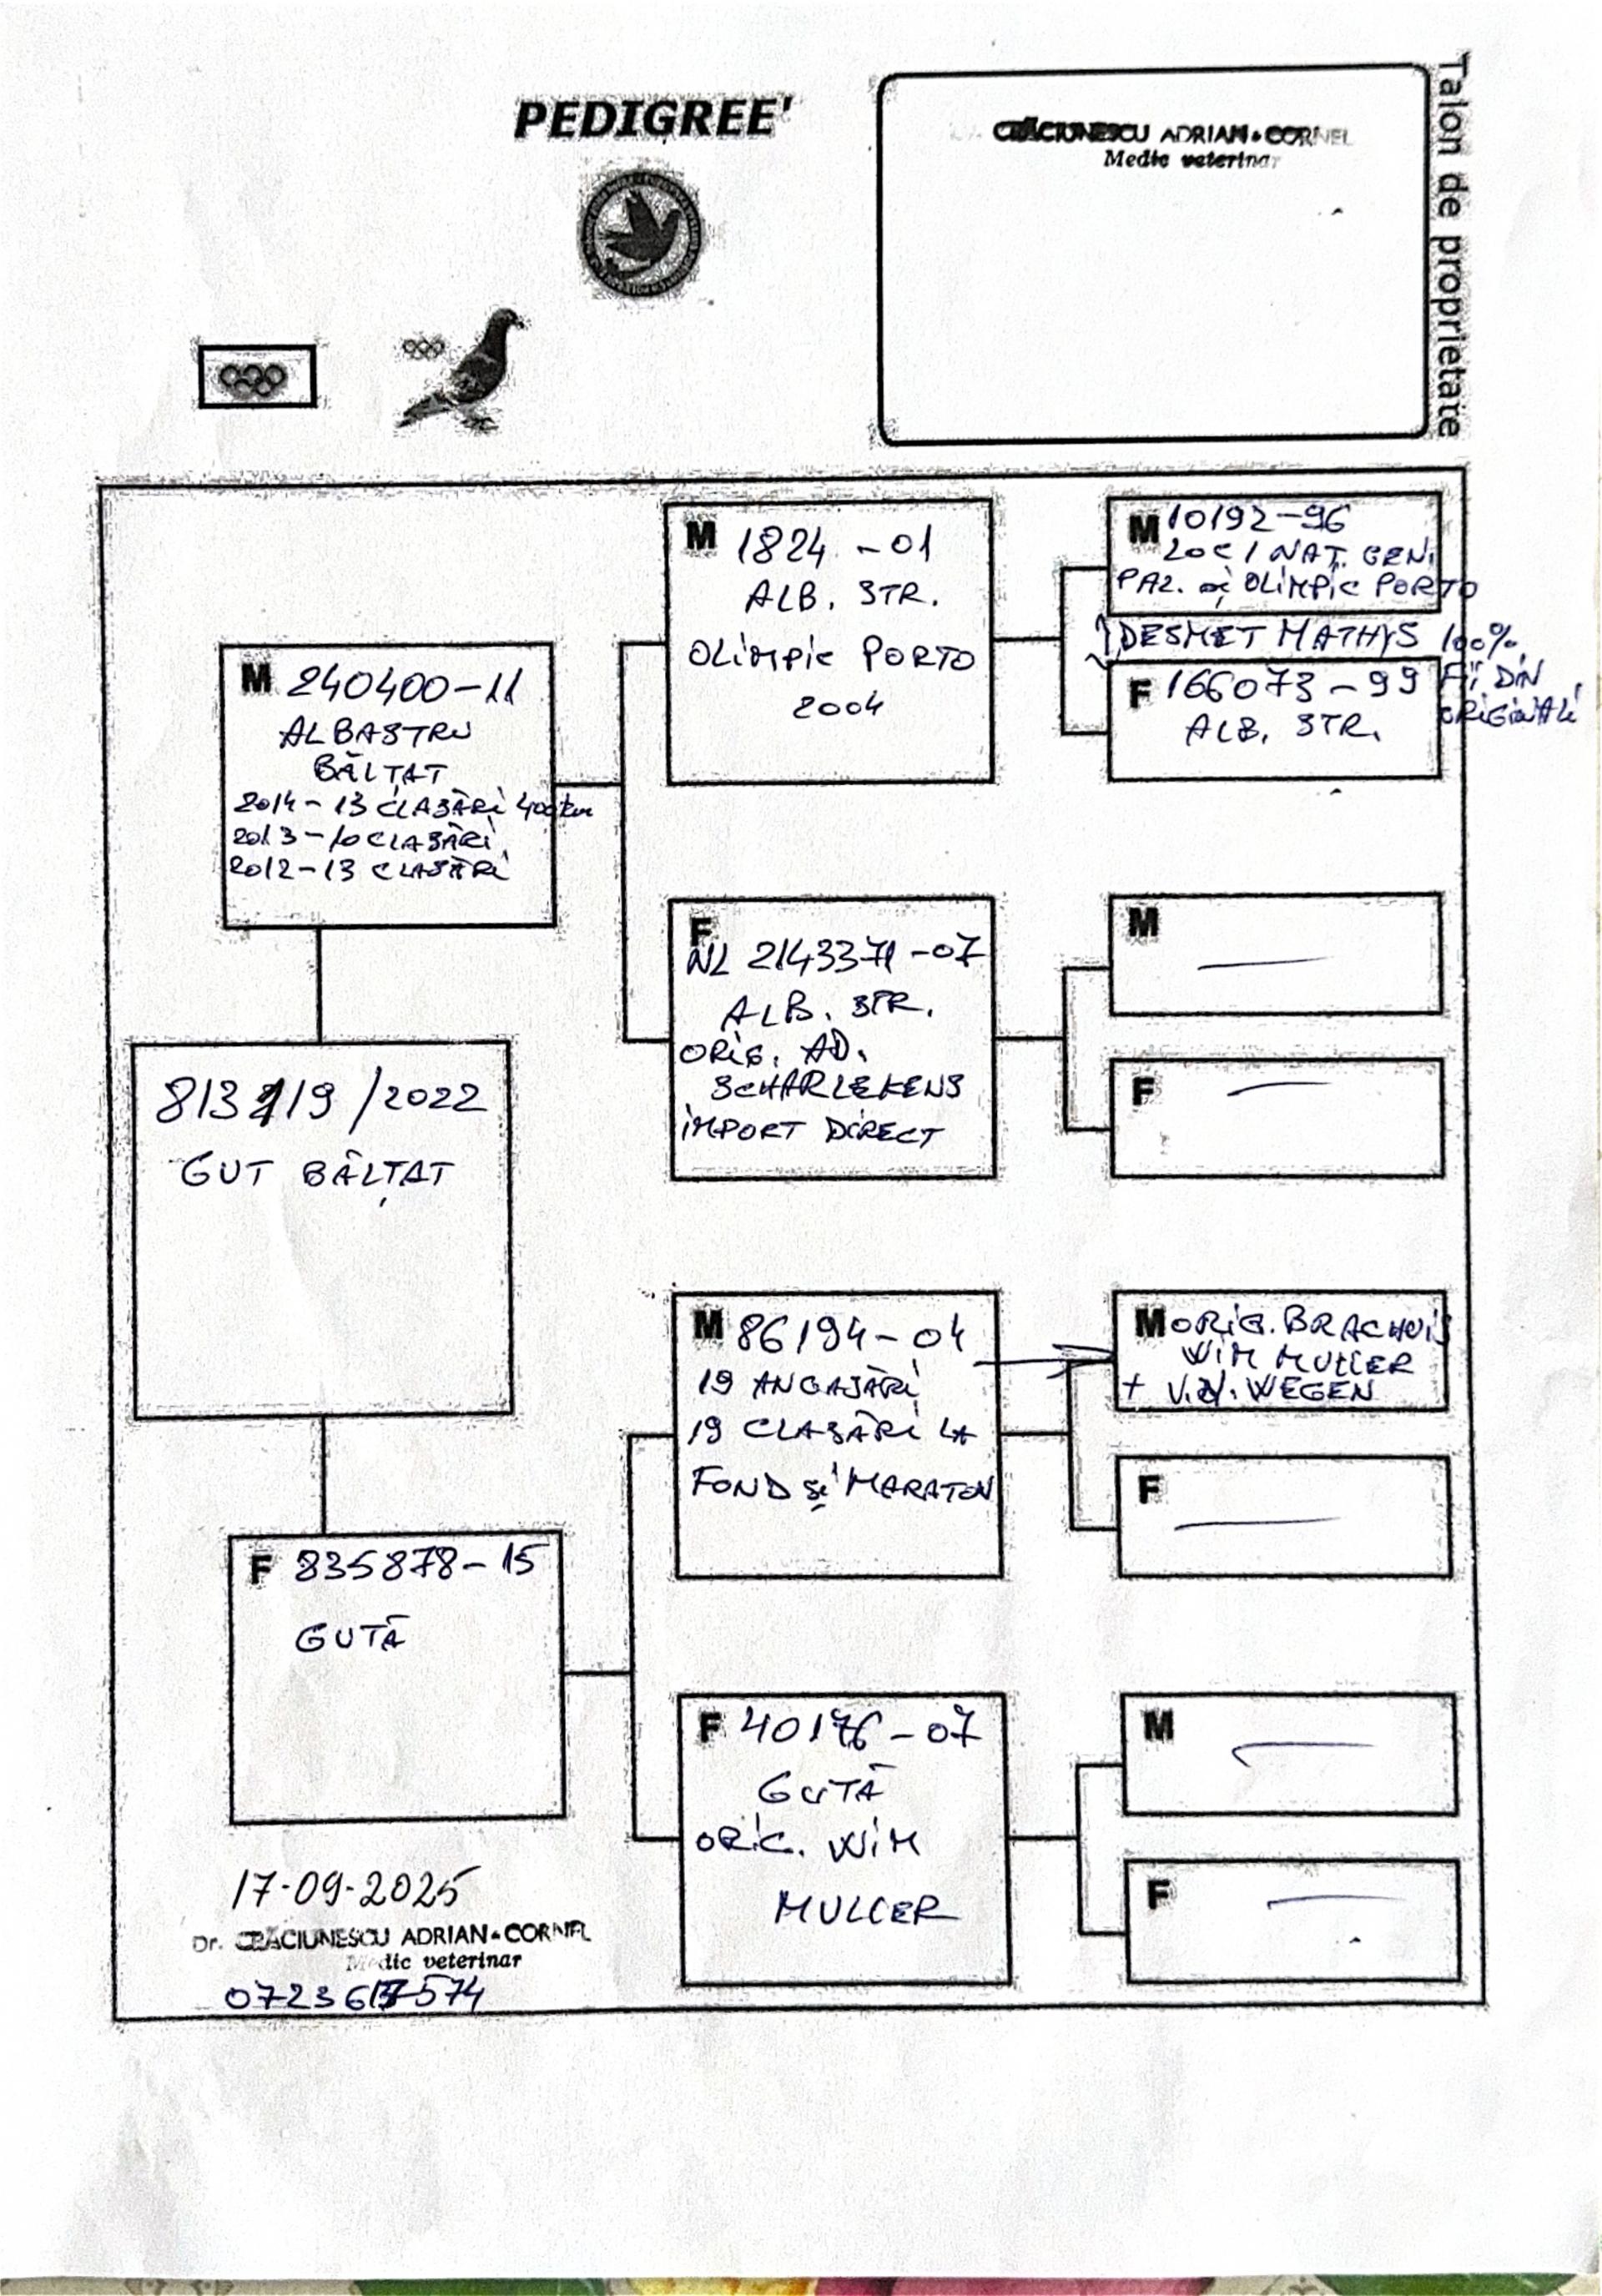 PEDIGREE'
CRĂCIUNESCU ADRIAN-CORNEL
Medic veterinar
Talon de proprietate
M 10192-96
LOC 1 NAȚ. GEN.
PAL. și OLIMPIC PORTO
DESMET MATHYS 100%
FII DIN
ORIGINALI
F 166073-99
ALB. STR.
M 1824-01
ALB. STR.
OLIMPIC PORTO
2004
M 240400-11
ALBASTRU
BĂLȚAT
2014-13 CLASĂRI 400 km
2013-10 CLASĂRI
2012-13 CLASĂRI
F
NL 2143371-07
ALB. STR.
ORIG. AD.
SCHARLEKENS
IMPORT DIRECT
M
F
/2022
GUT BĂLȚAT
M 86194-04
19 ANGAJĂRI
19 CLASĂRI LA
FOND și MARATON
M ORIG. BRACHUIS
WIM MULLER
+ V.D. WEGEN
F
F 835878-15
GUTĂ
F 40176-07
GUTĂ
ORIG. WIM
MULLER
M
F
17-09-2025
Dr. CRĂCIUNESCU ADRIAN-CORNEL
Medic veterinar